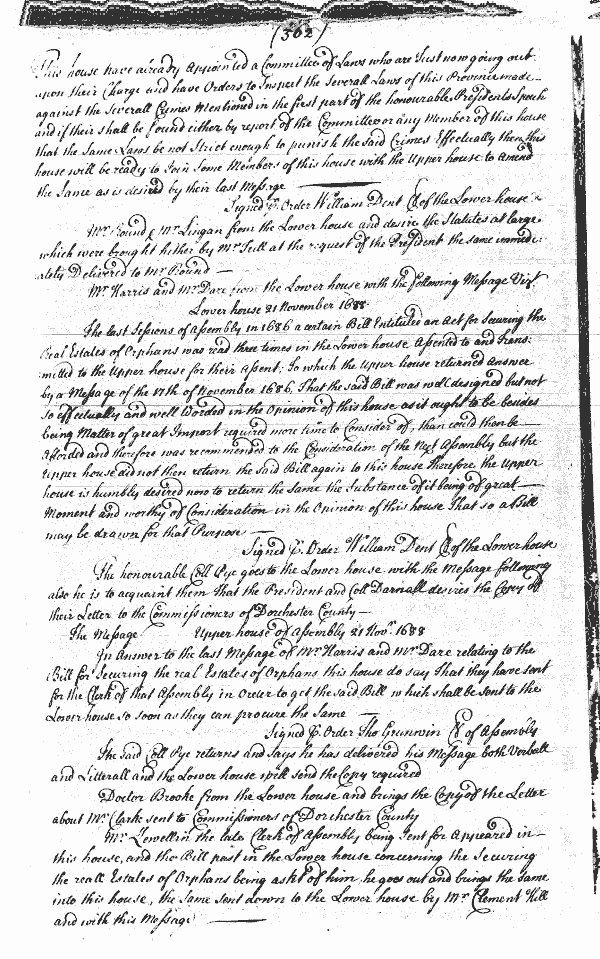 (362)
This house have already Appointed a Committee of Laws who are Just now going out
upon their Charge and have Orders to Inspect the Severall Laws of this Province made
against the Severall Crimes Mentioned in the first part of the honourable Presidents Speech
and if their shall be found either by report of the Committee or any Member of this house
that the Same Laws be not Strict enough to punish the said Crimes Effectually then this
house will be ready to Join Some Members of this house with the Upper house to Amend
the Same as is desired by their last Message
Signed p. Order William Dent Cl of the Lower house
Mr. Round & Mr. Lingan from the Lower house and desire the Statutes at large
which were brought hither by Mr. Tull at the request of the President the same immedi:
ately Delivered to Mr. Round
Mr. Harris and Mr. Dare from the Lower house with the following Message Vizt.
Lower house 21 November 1688
The last Sessions of Assembly in 1686 a certain Bill Entituled an Act for Securing the
Real Estates of Orphans was read three times in the Lower house Assented to and Trans:
mitted to the Upper house for their Assent: To which the Upper house returned Answer
by a Message of the 17th of November 1686, That the said Bill was well designed but not
so effectually and well Worded in the Opinion of this house as it ought to be besides
being Matter of great Import required more time to Consider of, than could than be
Afforded and therefore was recommended to the Consideration of the Next Assembly but the
Upper house did not then return the said Bill again to this house Therefore the Upper
house is humbly desired now to return the Same the Substance of it being of great
Moment and worthy of Consideration in the Opinion of this house That so a Bill
may be drawn for that Purpose
Signed p. Order William Dent Cl of the Lower house
The honourable Coll Pye goes to the Lower house with the Message following
also he is to acquaint them that the President and Coll Darnall desires the Copy of
their Letter to the Commissioners of Dorchester County
The Message Upper house of Assembly 21 Novr. 1688
In Answer to the last Message of Mr. Harris and Mr. Dare relating to the
Bill for Securing the real Estates of Orphans this house do say That they have sent
for the Clerk of that Assembly in Order to get the said Bill which shall be sent to the
Lower house so soon as they can procure the Same
Signed p. Order Tho Grunwin Cl of Assembly
The Said Coll Pye returns and says he has delivered his Message both Verball
and Litterall and the Lower house will send the Copy required
Doctor Brooke from the Lower house and brings the Copy of the Letter
about Mr. Clark sent to Commissioners of Dorchester County
Mr. Lewellin the late Clerk of Assembly being Sent for Appeared in
this house, and the Bill past in the Lower house concerning the Securing
the reall Estates of Orphans being askt of him he goes out and brings the same
into this house, the Same sent down to the Lower house by Mr. Clement Hill
and with this Message